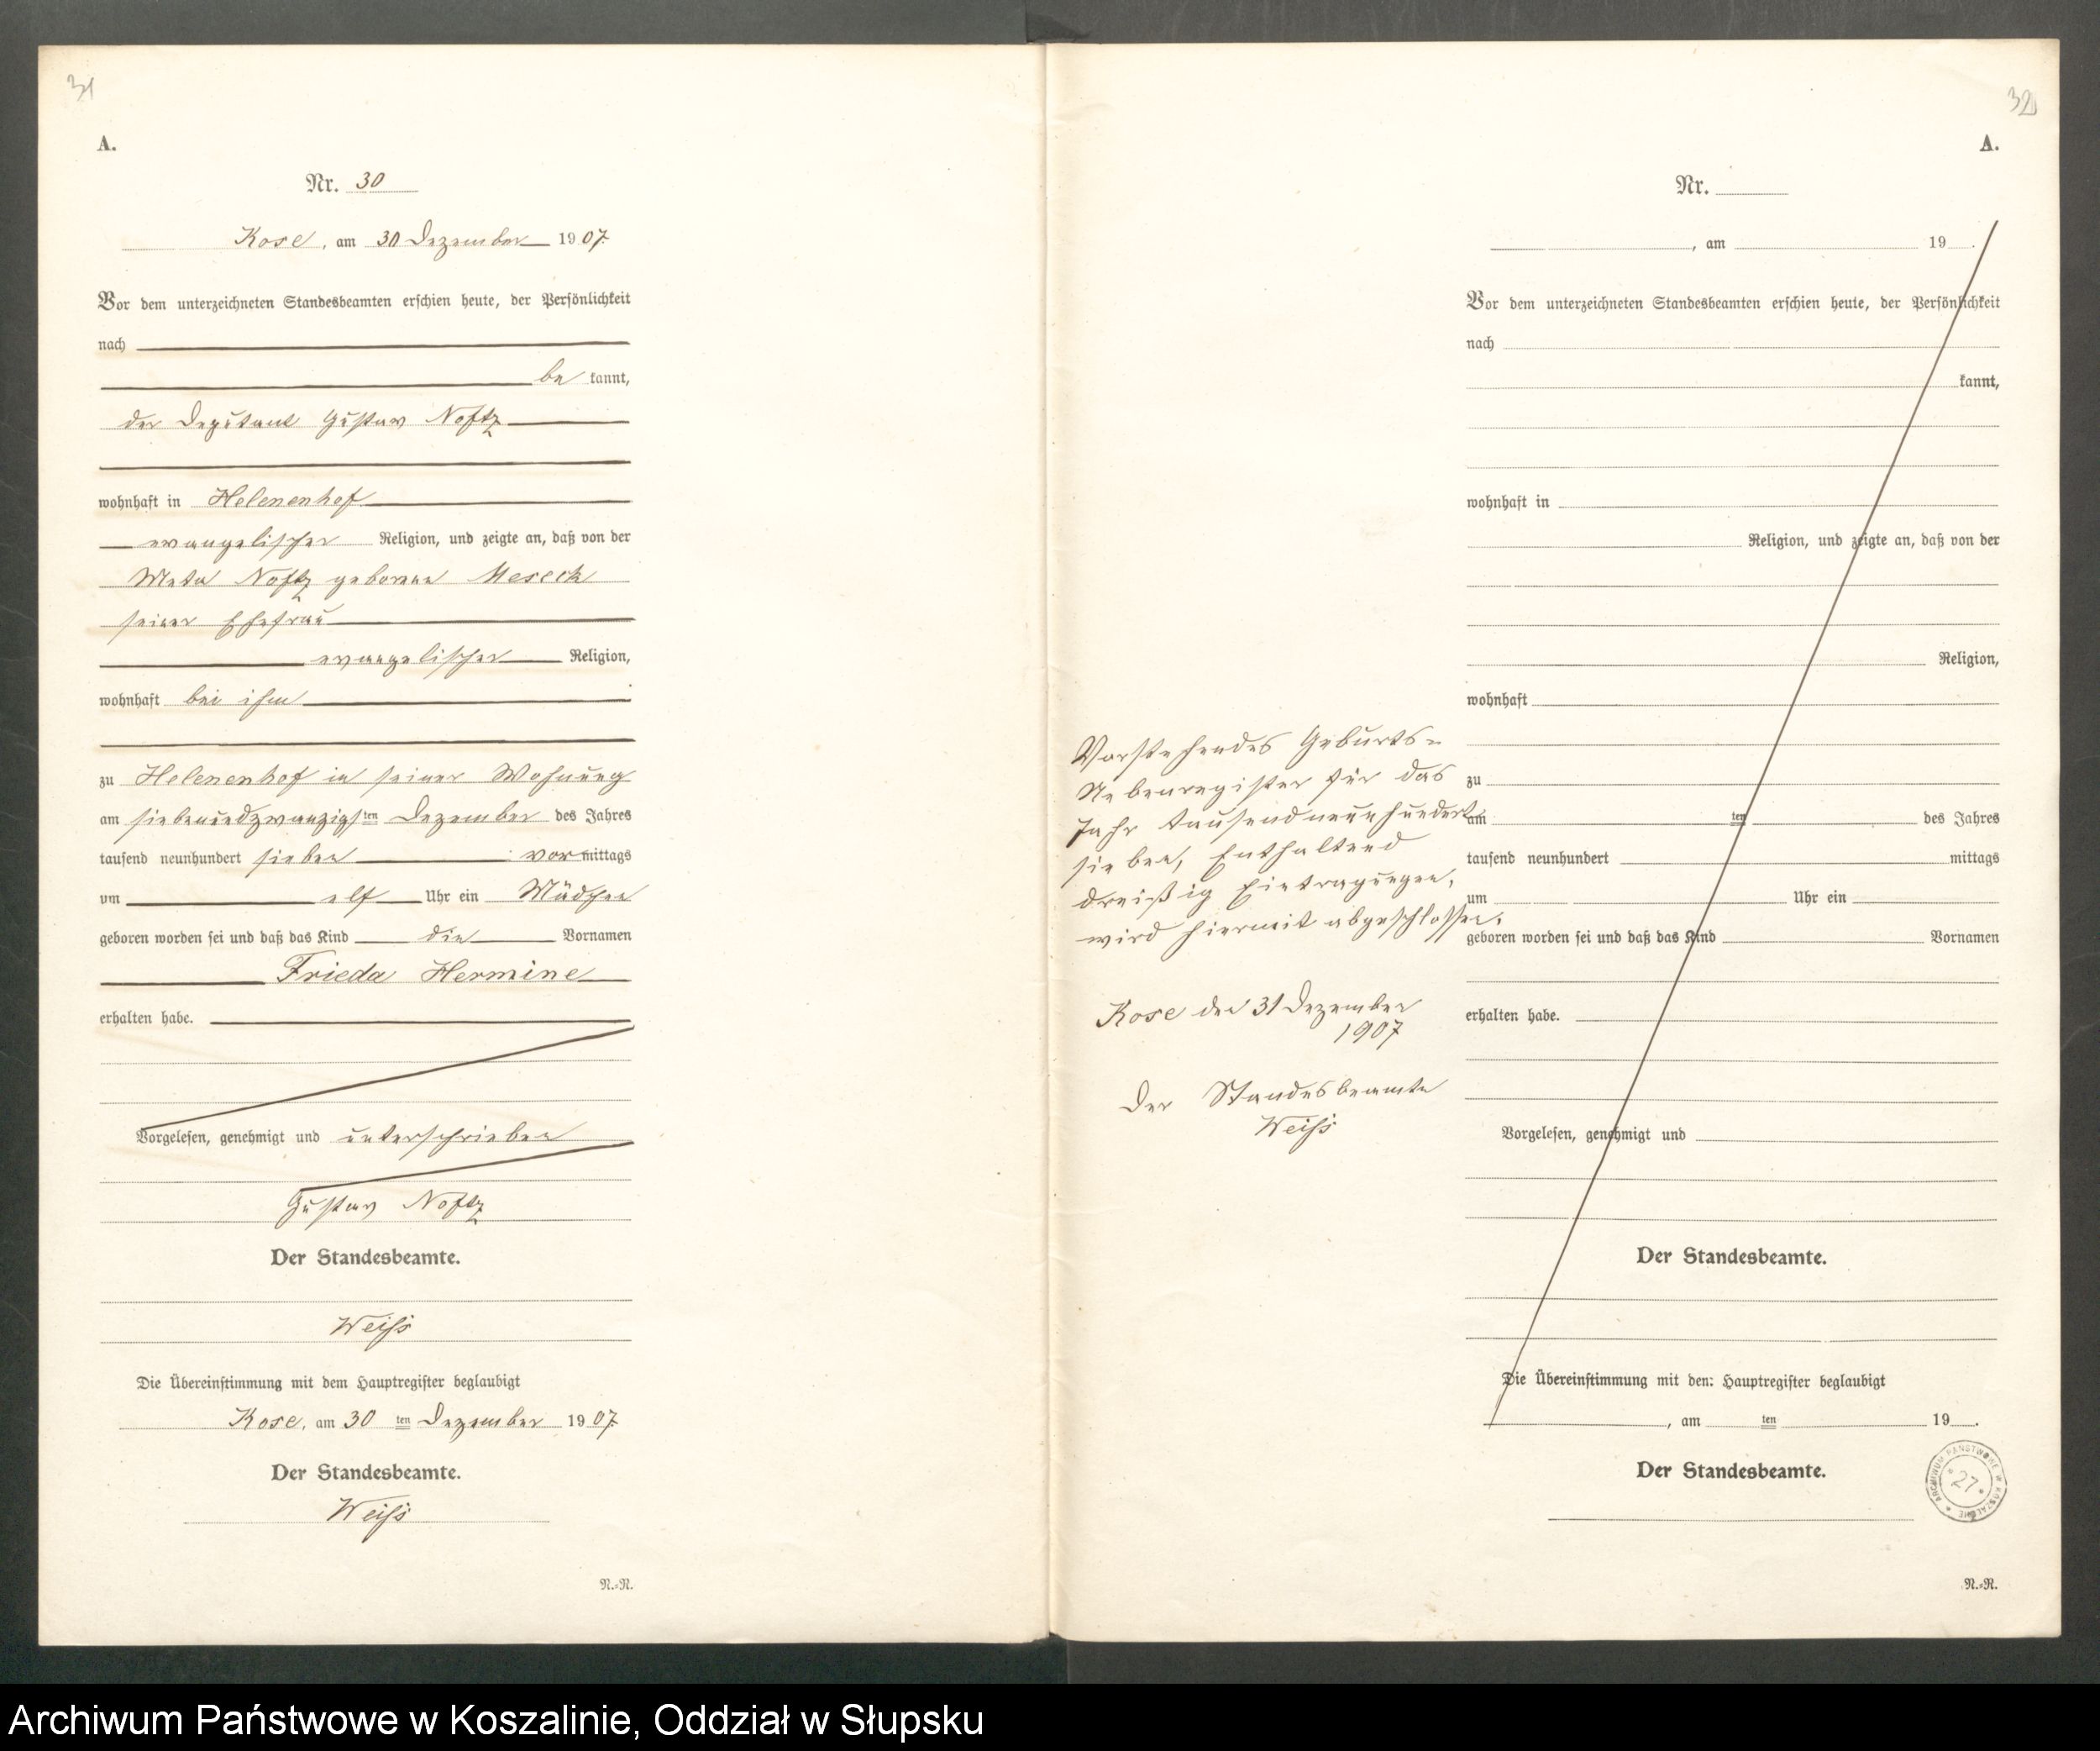 31
A.
Nr. 30
Kose, am 30 Dezember 1907.
Vor dem unterzeichneten Standesbeamten erschien heute, der Persönlichkeit
nach
be kannt,
der Deputant Gustav Noftz
wohnhaft in Helenenhof
evangelischer Religion, und zeigte an, daß von der
Meta Noftz geborene Meseck
seiner Ehefrau
evangelischer Religion,
wohnhaft bei ihm
zu Helenenhof in seiner Wohnung
am siebenundzwanzigsten ten Dezember des Jahres
tausend neunhundert sieben vormittags
um elf Uhr ein Mädchen
geboren worden sei und daß das Kind die Vornamen
Frieda Hermine
erhalten habe.
Vorgelesen, genehmigt und unterschrieben
Gustav Noftz
Der Standesbeamte.
Weiß
Die Übereinstimmung mit dem Hauptregister beglaubigt
Kose, am 30 ten Dezember 1907.
Der Standesbeamte.
Weiß
N.=R.
32
A.
Nr.
, am 19 .
Vor dem unterzeichneten Standesbeamten erschien heute, der Persönlichkeit
nach
kannt,
wohnhaft in
Religion, und zeigte an, daß von der
Religion,
wohnhaft
zu
am ten des Jahres
tausend neunhundert mittags
um Uhr ein
geboren worden sei und daß das Kind Vornamen
erhalten habe.
Vorgelesen, genehmigt und
Der Standesbeamte.
Die Übereinstimmung mit dem Hauptregister beglaubigt
, am ten 19 .
Der Standesbeamte.
N.=R.
Vorstehendes Geburts-
Nebenregister für das
Jahr tausendneunhundert
sieben, Enthaltend
dreißig Eintragungen,
wird hiermit abgeschlossen.
Kose den 31 Dezember
1907
Der Standesbeamte
Weiß
ARCHIWUM PAŃSTWOWE W KOSZALINIE
27
Archiwum Państwowe w Koszalinie, Oddział w Słupsku